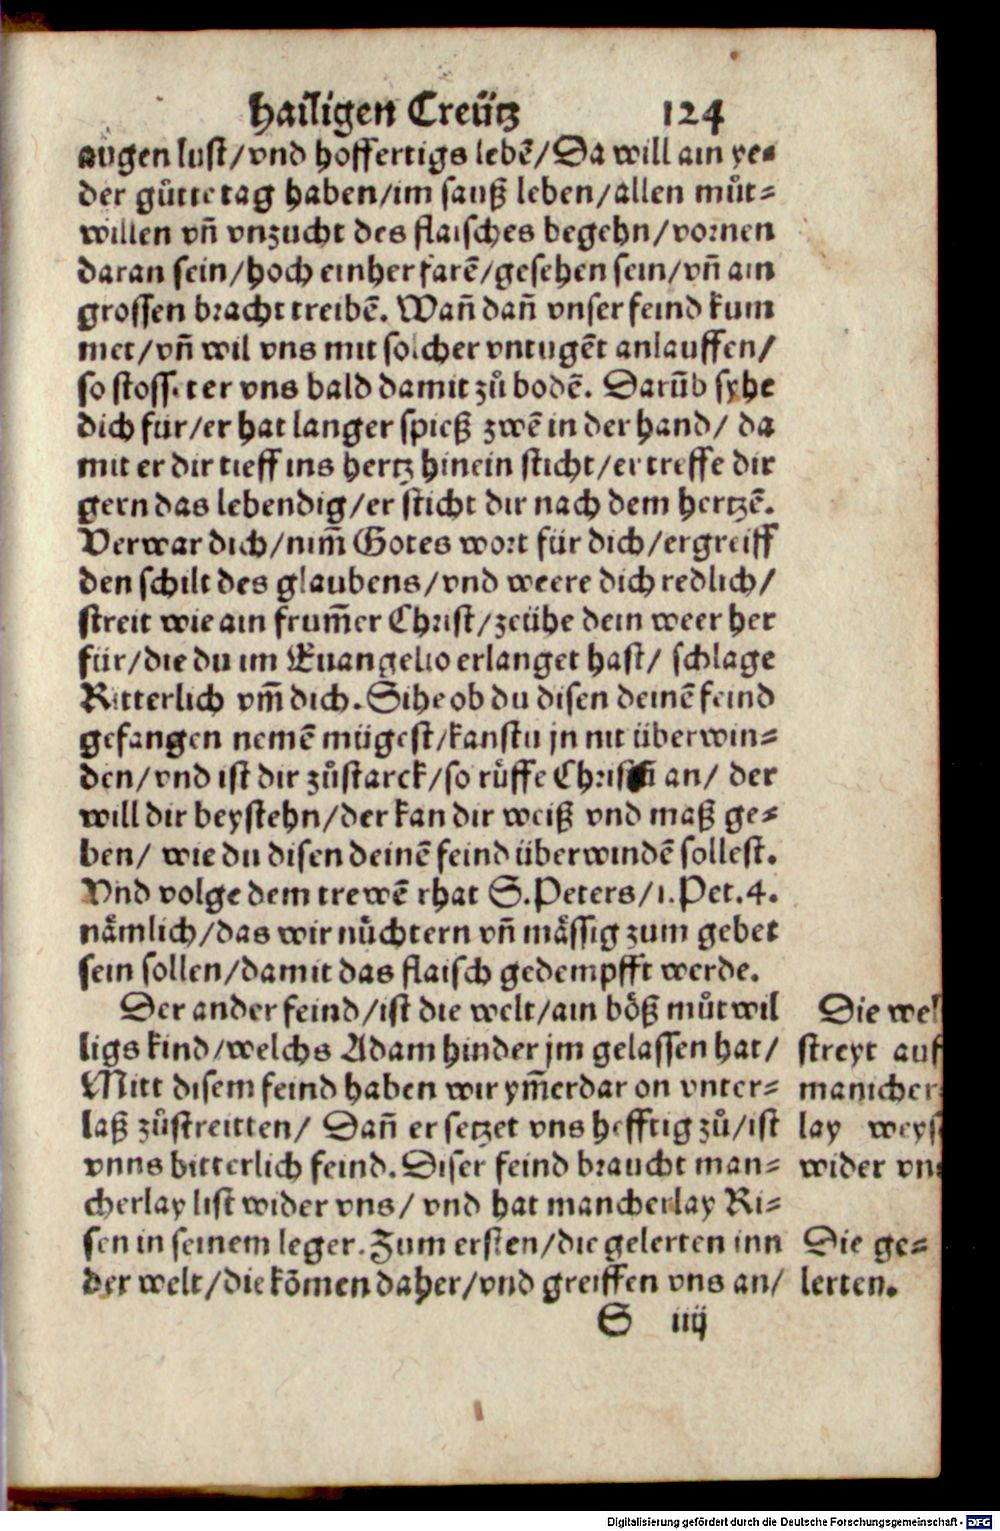 hailigen Creütz 124
augen lust/vnd hoffertigs lebẽ/Da will ain ye=
der gůtte tag haben/im sauß leben/allen můt=
willen vñ vnzucht des flaisches begehn/vornen
daran sein/hoch einher farẽ/gesehen sein/vñ ain
grossen bracht treibẽ. Wañ dañ vnser feind kum
met/vñ wil vns mit solcher vntugẽt anlauffen/
so stosset er vns bald damit zů bodẽ. Darũb syhe
dich für/er hat langer spieß zwẽ in der hand/ da
mit er dir tieff ins hertz hinein sticht/er treffe dir
gern das lebendig/er sticht dir nach dem hertzẽ.
Verwar dich/nim̃ Gotes wort für dich/ergreiff
den schilt des glaubens/vnd weere dich redlich/
streit wie ain frum̃er Christ/zeühe dein weer her
für/die du im Euangelio erlanget hast/ schlage
Ritterlich vm̃ dich. Sihe ob du disen deinẽ feind
gefangen nemẽ mügest/kanstu jn nit überwin=
den/vnd ist dir zůstarck/so růffe Christũ an/ der
will dir beystehn/der kan dir weiß vnd maß ge=
ben/ wie du disen deinẽ feind überwindẽ sollest.
Vnd volge dem trewẽ rhat S.Peters/1.Pet.4.
nämlich/das wir nüchtern vñ mässig zum gebet
sein sollen/damit das flaisch gedempfft werde.
Der ander feind/ist die welt/ain böß můtwil
ligs kind/welchs Adam hinder jm gelassen hat/
Mitt disem feind haben wir ym̃erdar on vnter=
laß zůstreitten/ Dañ er setzet vns hefftig zů/ist
vnns bitterlich feind. Diser feind braucht man=
cherlay list wider vns/ vnd hat mancherlay Ri=
sen in seinem leger. Zum ersten/die gelerten inn
der welt/die kõmen daher/vnd greiffen vns an/
S iiij
Die wel
streyt auf
manicher
lay weys
wider vns
Die ge=
lerten.
Digitalisierung gefördert durch die Deutsche Forschungsgemeinschaft - DFG